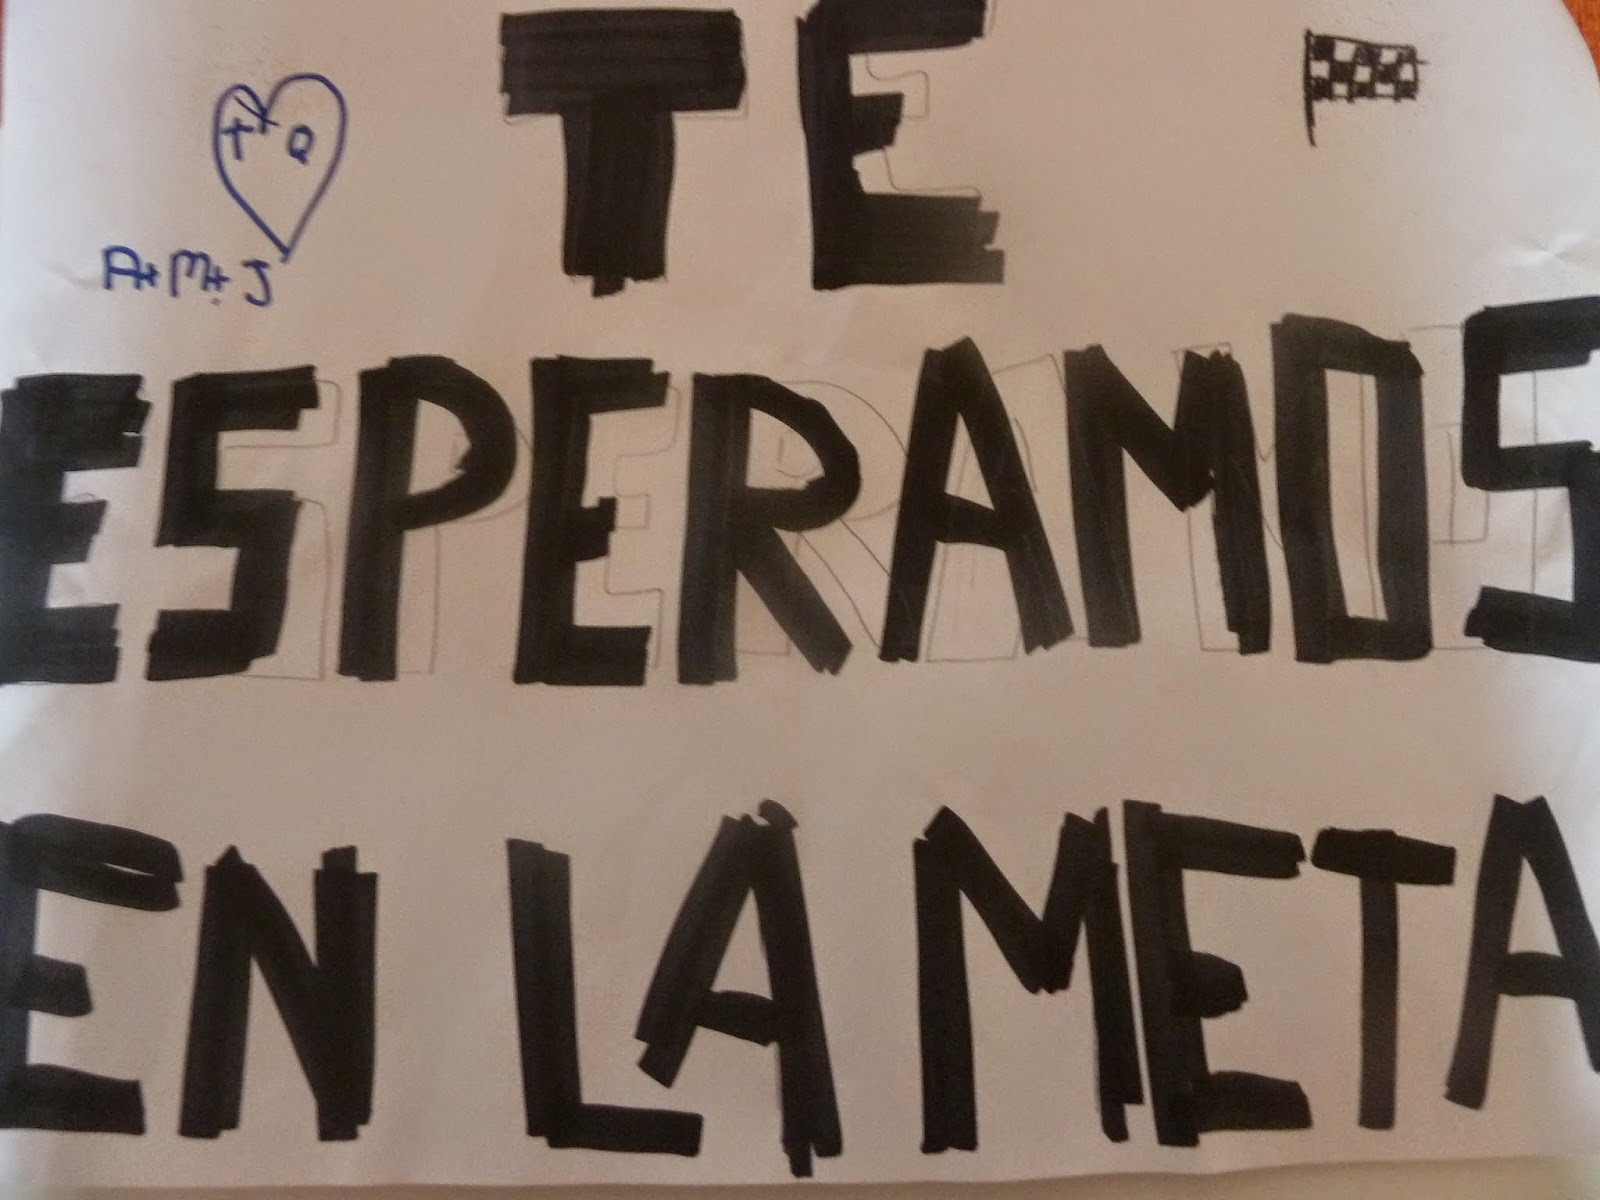 TE
T Q
A+M+J
ESPERAMOS
EN LA META